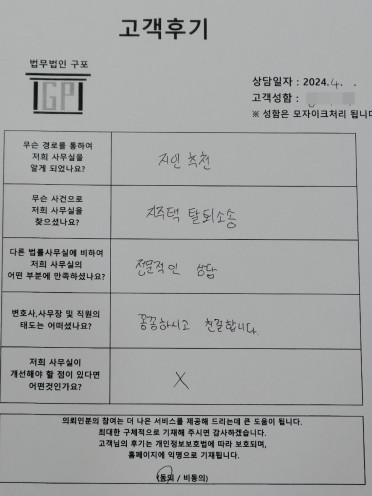 고객후기
법무법인 구포
GP
상담일자 : 2024.4. .
고객성함 :
※ 성함은 모자이크처리 됩니다
무슨 경로를 통하여
저희 사무실을
알게 되었나요?
지인 추천
무슨 사건으로
저희 사무실을
찾으셨나요?
지주택 탈퇴소송
다른 법률사무실에 비하여
저희 사무실의
어떤 부분에 만족하셨나요?
전문적인 상담
변호사,사무장 및 직원의
태도는 어떠셨나요?
꼼꼼하시고 친절합니다.
저희 사무실이
개선해야 할 점이 있다면
어떤것인가요?
X
의뢰인분의 참여는 더 나은 서비스를 제공해 드리는데 큰 도움이 됩니다.
최대한 구체적으로 기재해 주시면 감사하겠습니다.
고객님의 후기는 개인정보보호법에 따라 보호되며,
홈페이지에 익명으로 기재됩니다.
(동의 / 비동의)